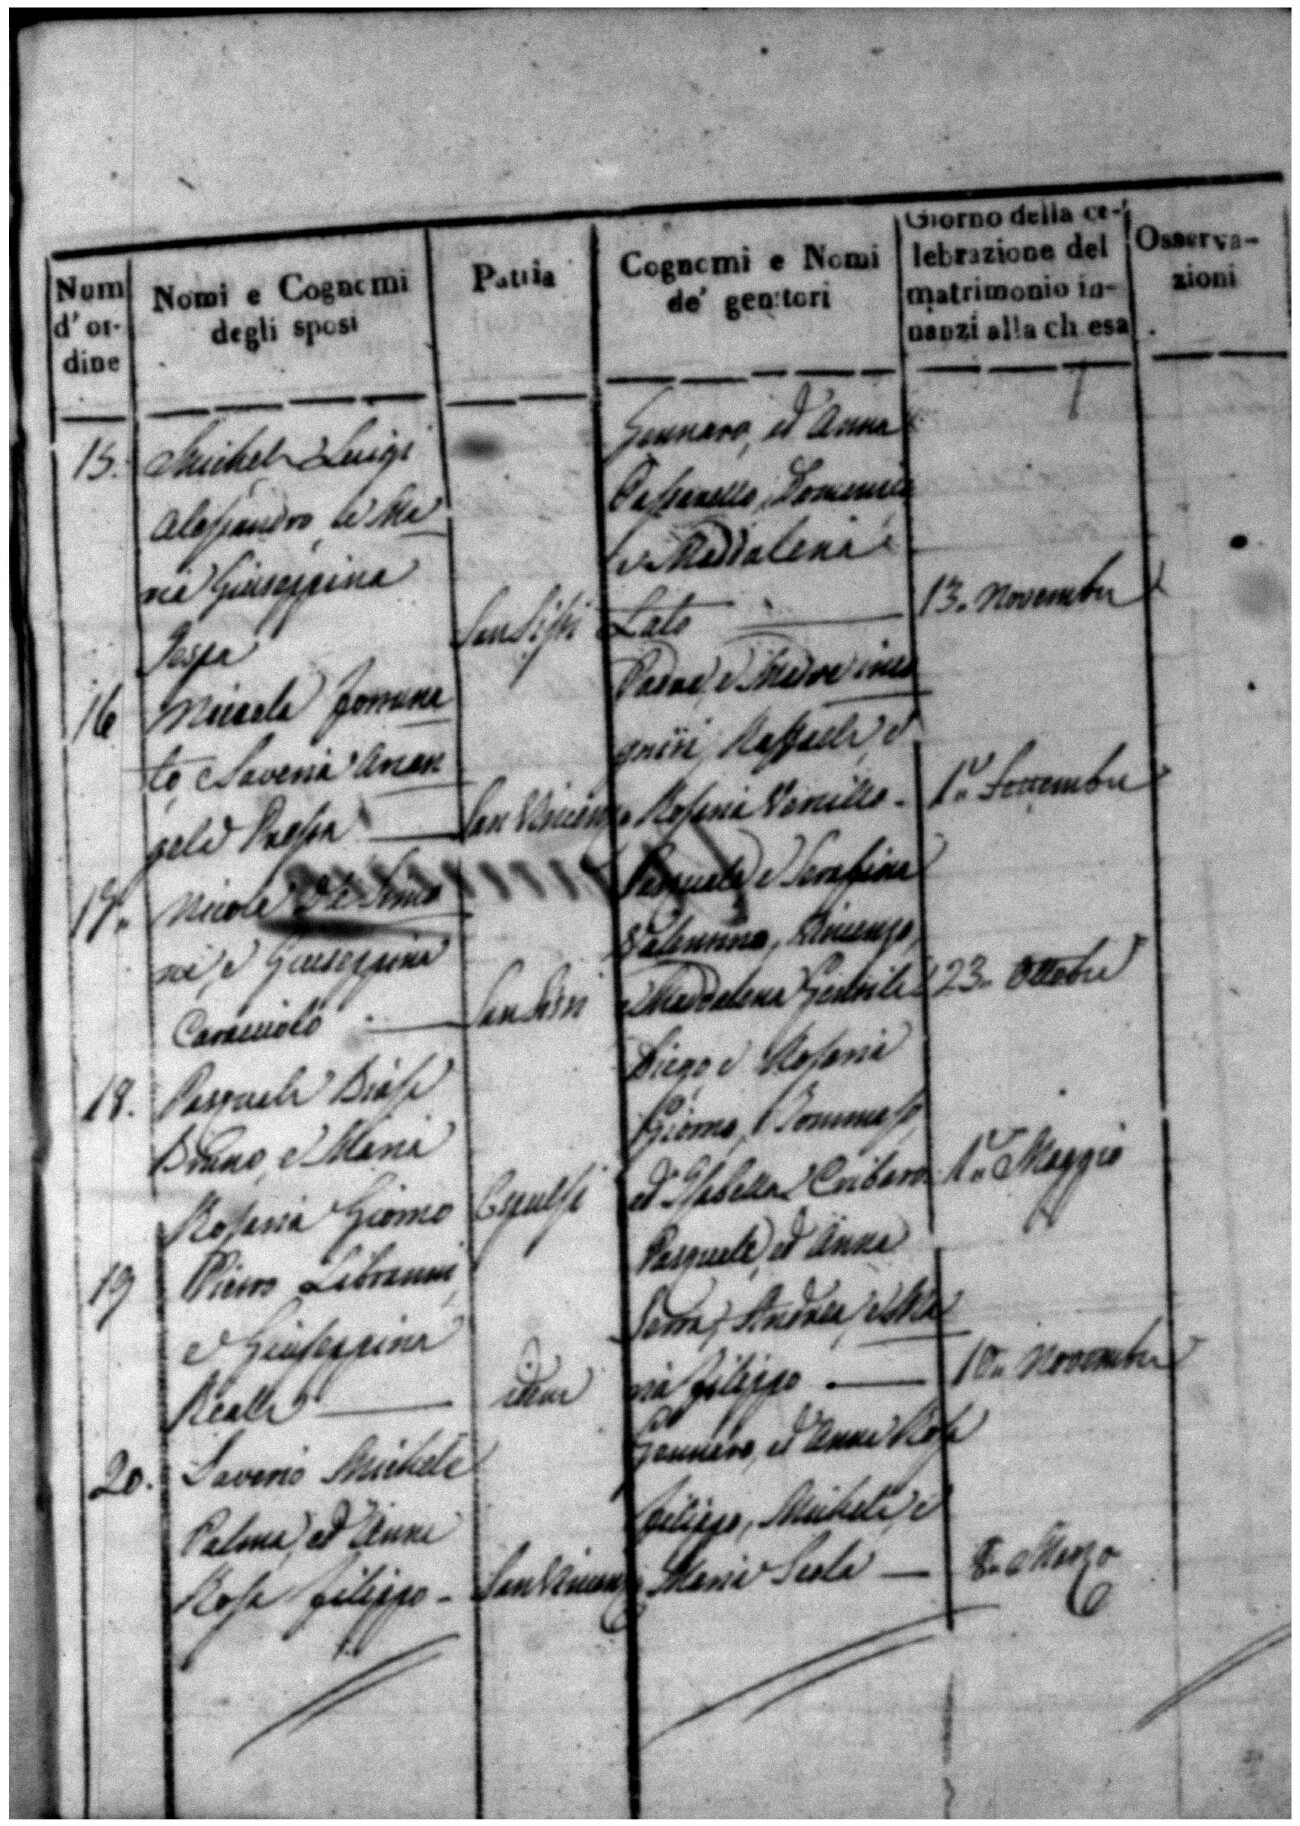 Num
d' or-
dine
Nomi e Cognomi
degli sposi
Patria
Cognomi e Nomi
de' genitori
Giorno della ce-
lebrazione del
matrimonio in-
nanzi alla chiesa
Osserva-
zioni
15. Michele Luigi
Alessandro, e Ma
ria Giuseppina
San Sisti
Gennaro, ed Anna
Domenico
e Maddalena
Lato
13. Novembre
16
to, e Saveria Arcan
gela
San Vincenzo
Padre, e Madre inco
gniti, Raffaele, e
Rosaria
1º Settembre
17. Nicola De Simo
ne, e Giuseppina
Caracciolo
San Sisti
Pasquale e Serafina
Vincenzo,
e Maddalena Gentile
23. Ottobre
18. Pasquale Biase
Bruno, e Maria
Rosaria Giorno
Diego e Rosaria
Giorno, Tommaso
ed Isabella Cribaro
1º Maggio
19 Pietro
e Giuseppina
Reale
idem
Pasquale, ed Anna
Serra, Andrea, e Ma
ria Filippo
10. Novembre
20. Saverio Michele
Palma, ed Anna
Rosa Filippo -
San Vincenzo
Gennaro, ed Anna Rosa
Filippo, Michele, e
Maria Scola
8. Marzo